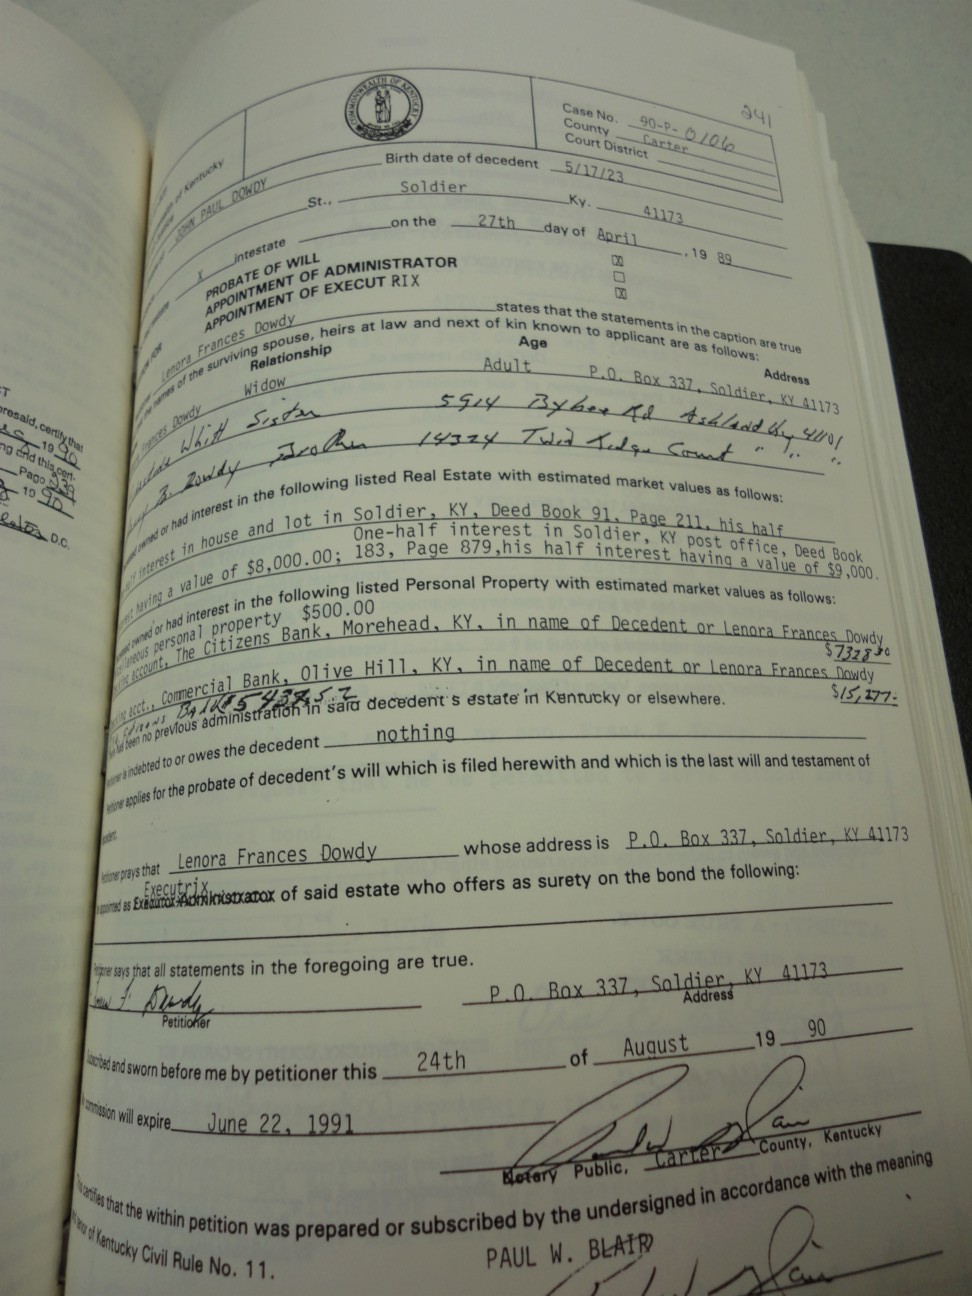 241
COMMONWEALTH OF KENTUCKY
Case No. 90-P-0106
County Carter
Court District
of Kentucky
JOHN PAUL DOWDY Birth date of decedent 5/17/23
St., Soldier Ky. 41173
X intestate on the 27th day of April , 19 89
PROBATE OF WILL X
APPOINTMENT OF ADMINISTRATOR
APPOINTMENT OF EXECUT RIX X
Lenora Frances Dowdy states that the statements in the caption are true
the names of the surviving spouse, heirs at law and next of kin known to applicant are as follows:
Relationship Age Address
Frances Dowdy Widow Adult P.O. Box 337, Soldier, KY 41173
Whitt Sister 5914 Bybee Rd Ashland Ky 41101
B. Dowdy Brother 14324 Twin Ridge Court " " "
owned or had interest in the following listed Real Estate with estimated market values as follows:
half interest in house and lot in Soldier, KY, Deed Book 91, Page 211, his half
having a value of $8,000.00; One-half interest in Soldier, KY post office, Deed Book
183, Page 879,his half interest having a value of $9,000.
owned or had interest in the following listed Personal Property with estimated market values as follows:
personal property $500.00
account, The Citizens Bank, Morehead, KY, in name of Decedent or Lenora Frances Dowdy
$7328 30
acct., Commercial Bank, Olive Hill, KY, in name of Decedent or Lenora Frances Dowdy
$15,277.-
been no previous administration in said decedent's estate in Kentucky or elsewhere.
Petitioner is indebted to or owes the decedent nothing
Petitioner applies for the probate of decedent's will which is filed herewith and which is the last will and testament of
decedent.
Petitioner prays that Lenora Frances Dowdy whose address is P.O. Box 337, Soldier, KY 41173
Executrix
appointed as Executor-Administrator of said estate who offers as surety on the bond the following:
Petitioner says that all statements in the foregoing are true.
F. Dowdy P.O. Box 337, Soldier, KY 41173
Petitioner Address
Subscribed and sworn before me by petitioner this 24th of August 19 90
commission will expire June 22, 1991
Notary Public, Carter County, Kentucky
This certifies that the within petition was prepared or subscribed by the undersigned in accordance with the meaning
of Kentucky Civil Rule No. 11.
PAUL W. BLAIR
certify that
19 90
and this cert-
Page 239
19 90
D.C.